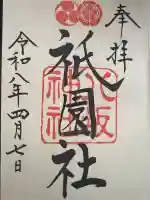 奉拝
祇園社
八坂神社
令和八年四月七日